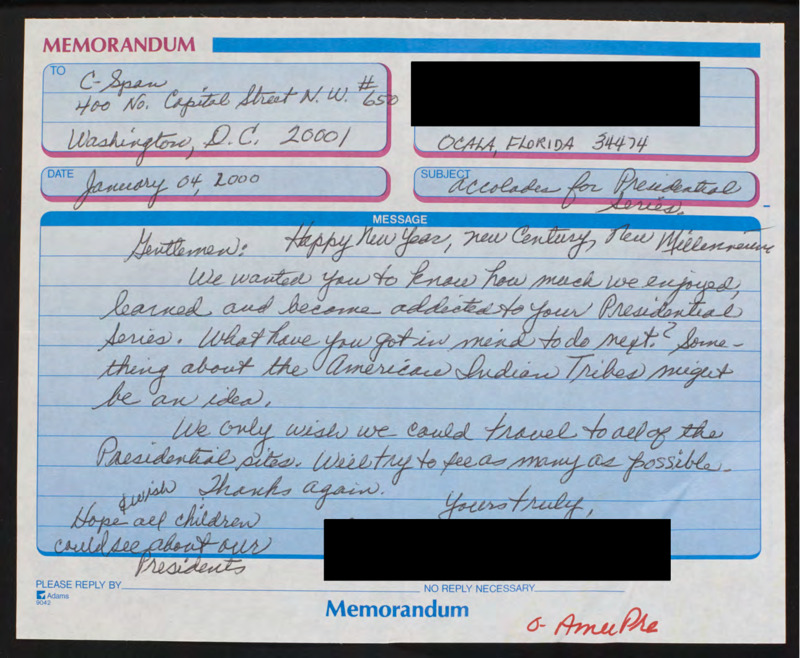 MEMORANDUM
TO
C-Span
400 No. Capital Street N.W. #650
Washington, D.C. 20001
OCALA, FLORIDA 34474
DATE
January 04, 2000
SUBJECT
accolades for Presidential
Series.
MESSAGE
Gentlemen: Happy New Year, new Century, New Millennium
We wanted you to know how much we enjoyed,
learned and became addicted to your Presidential
Series. What have you got in mind to do next? Some-
thing about the American Indian Tribes might
be an idea.
We only wish we could travel to all of the
Presidential sites. We'll try to see as many as possible.
Thanks again.
Yours truly,
Hope & wish all children
could see about our
Presidents
PLEASE REPLY BY
NO REPLY NECESSARY
Adams
9042
Memorandum